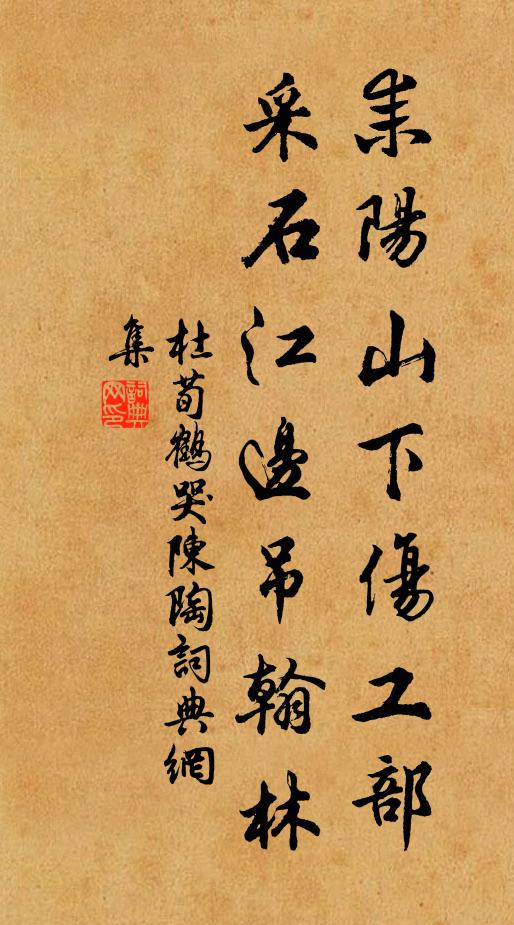 耒陽山下傷工部
采石江邊吊翰林
杜荀鶴哭陳陶詞典網
集
詞典
网印